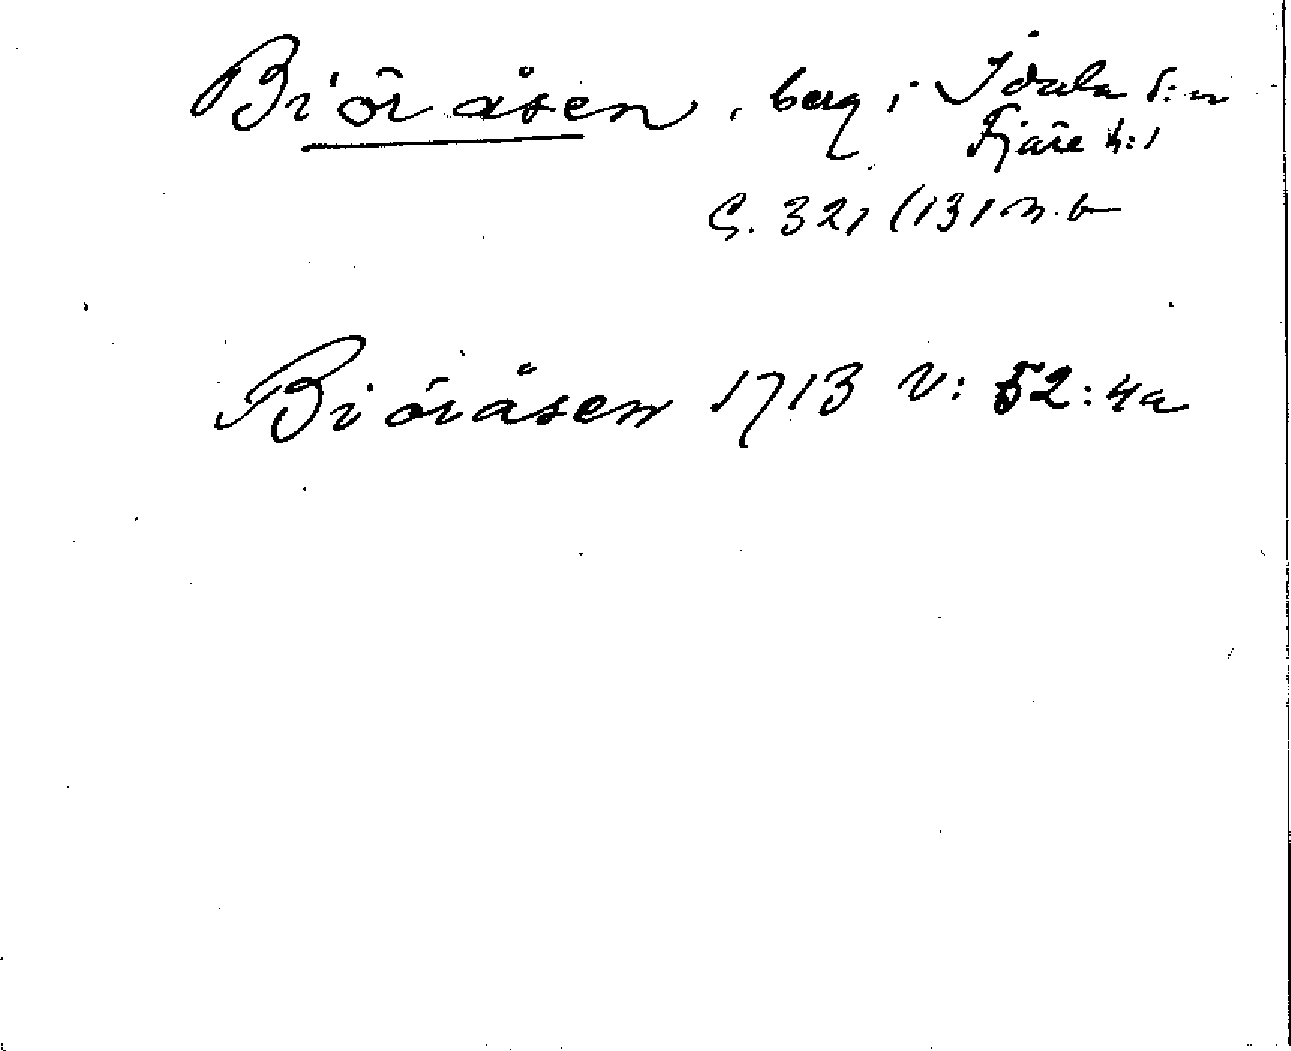 Biöråsen, berg i Idala s:n
Fjäre h:d
S. 321 (131 n.b
Biöråsen 1713 V: 52:4a